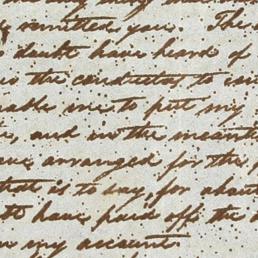 remitted you. The
doubt have heard of
the conductor to
me to put my
and in the meantime
have arranged for the
that is to say, for about
to have paid off the
my account.